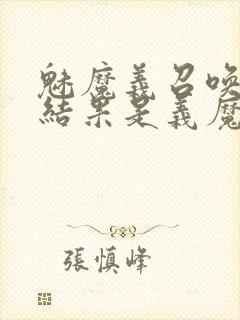 魅魔義召喚
結果是義魔
張慎峰